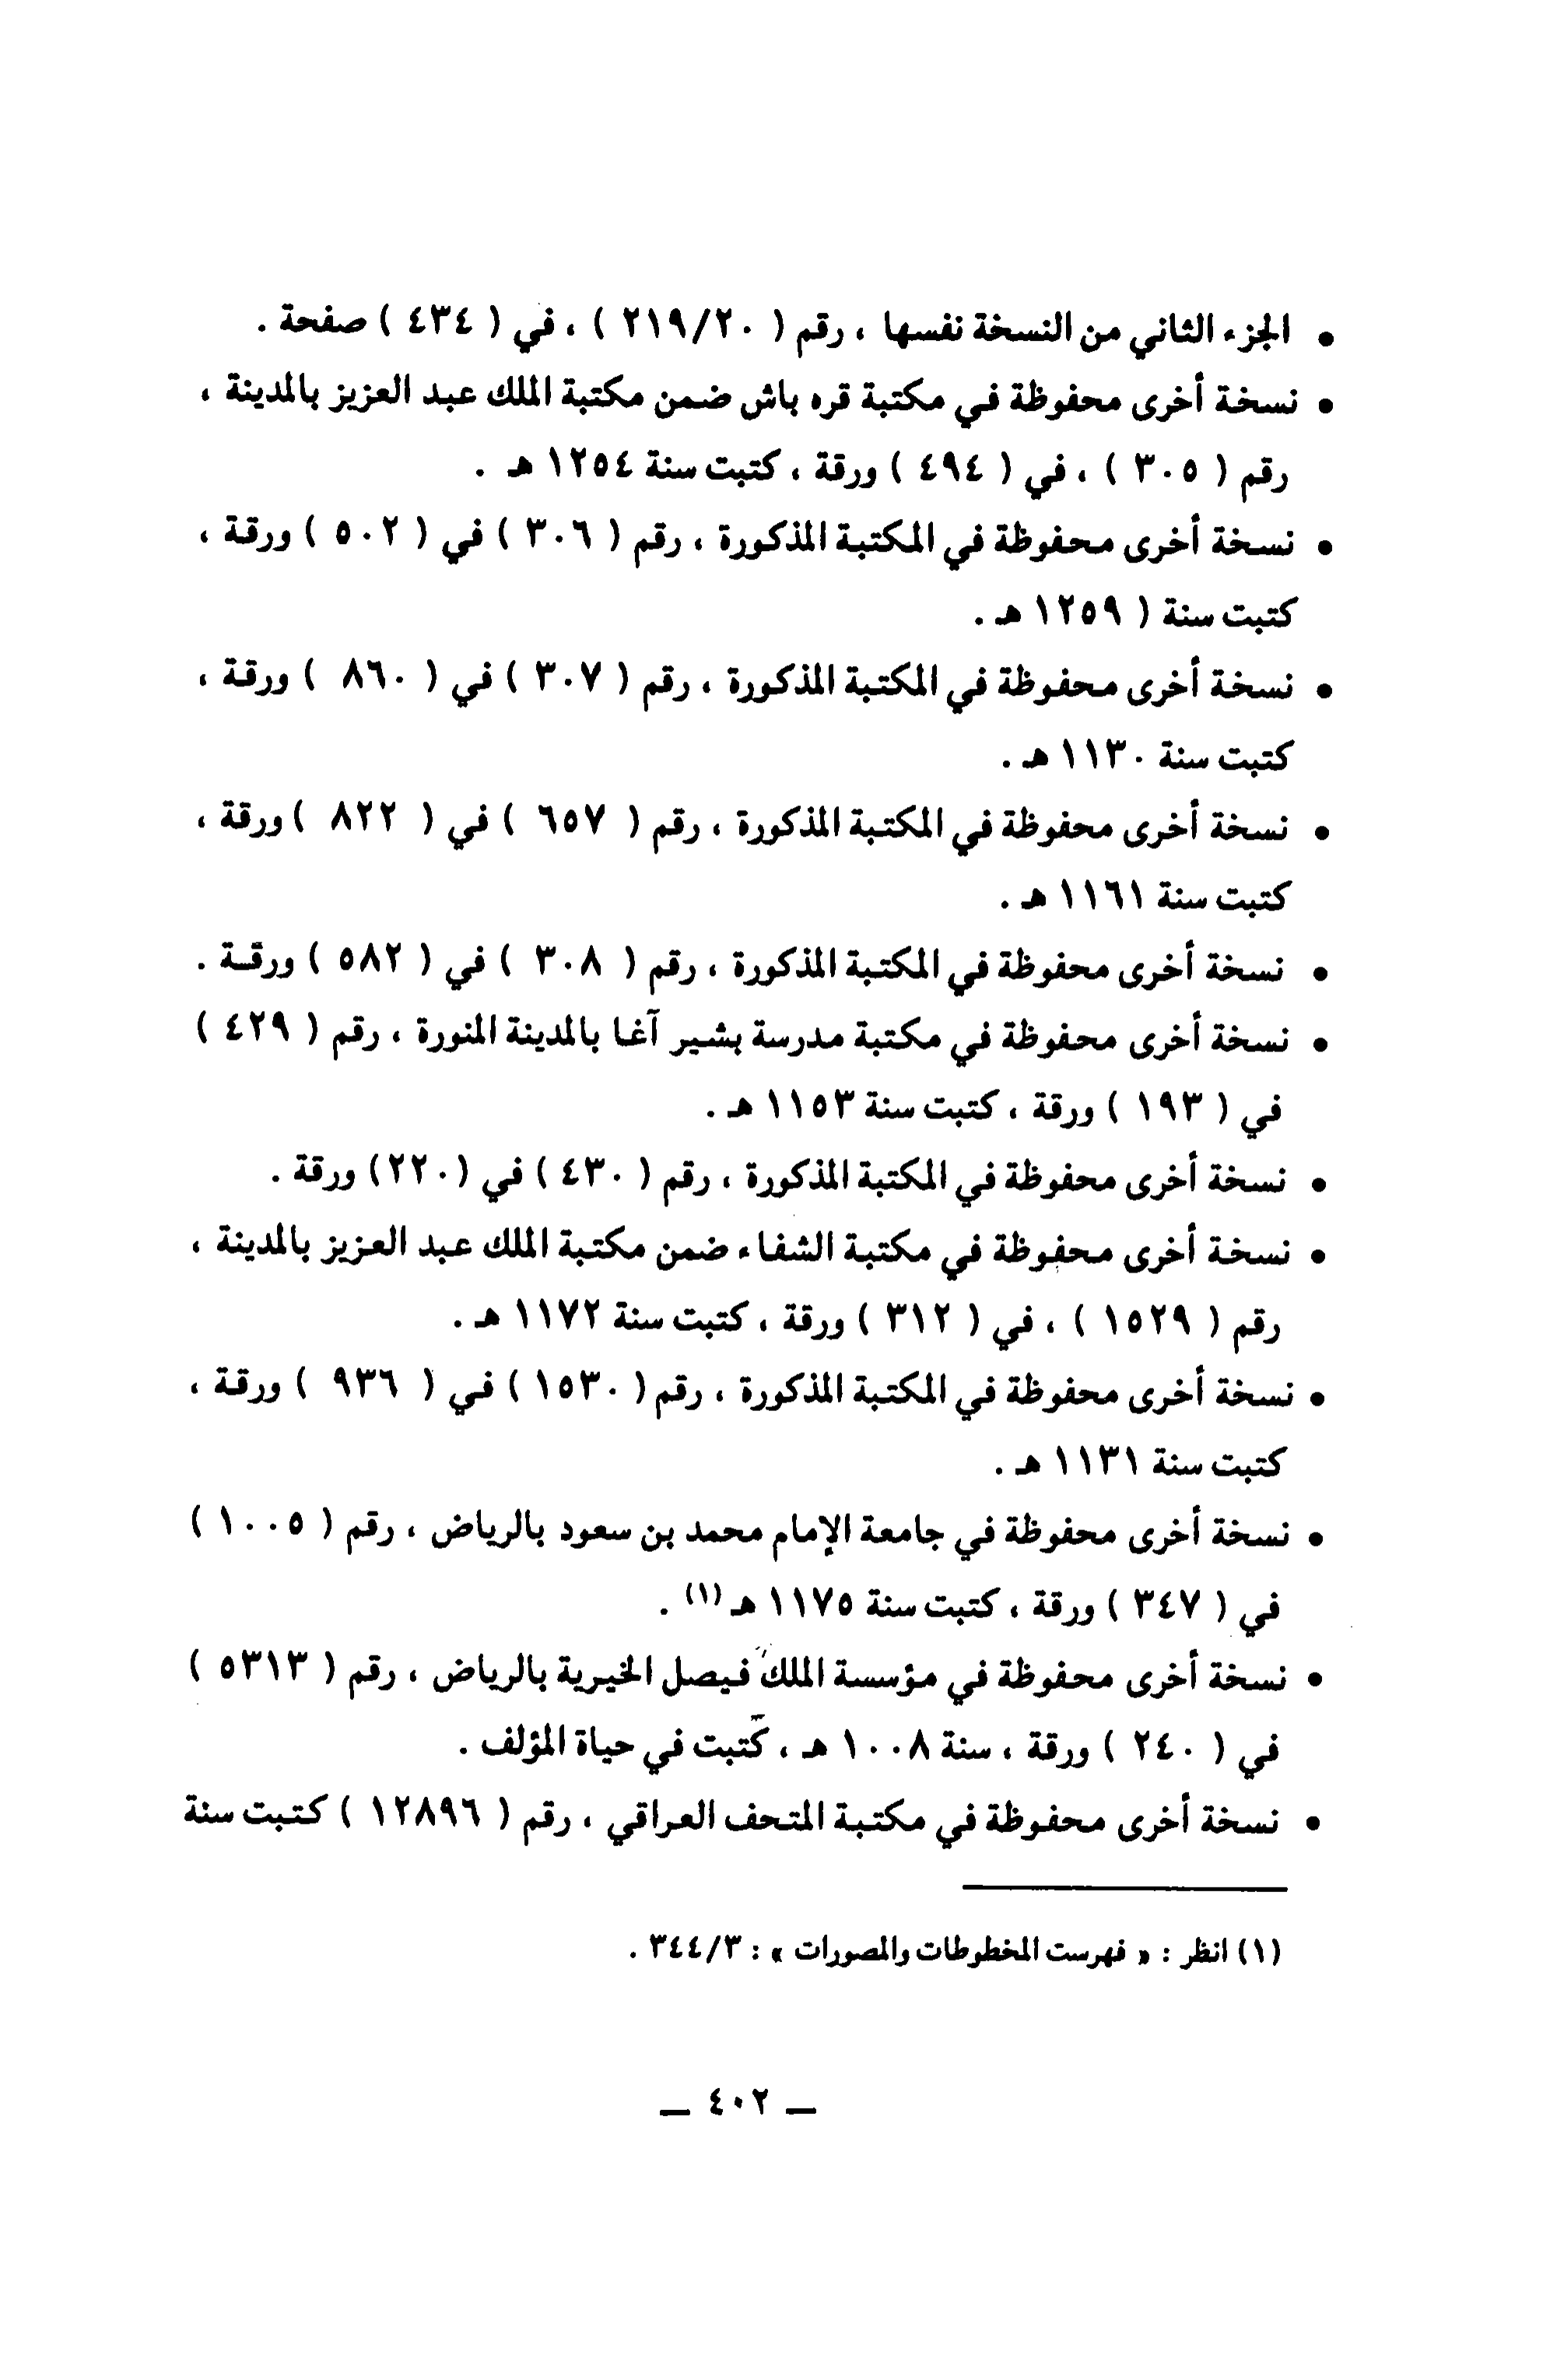 • الجزء الثاني من النسخة نفسها ، رقم ( ٢١٩/٢٠ ) ، في ( ٤٣٤ ) صفحة .
• نسخة أخرى محفوظة في مكتبة قره باش ضمن مكتبة الملك عبد العزيز بالمدينة ،
رقم ( ٣٠٥ ) ، في ( ٤٩٤ ) ورقة ، كتبت سنة ١٢٥٤ هـ .
• نسخة أخرى محفوظة في المكتبة المذكورة ، رقم ( ٣٠٦ ) في ( ٥٠٢ ) ورقة ،
كتبت سنة ( ١٢٥٩ هـ .
• نسخة أخرى محفوظة في المكتبة المذكورة ، رقم ( ٣٠٧ ) في ( ٨٦٠ ) ورقة ،
كتبت سنة ١١٣٠ هـ .
• نسخة أخرى محفوظة في المكتبة المذكورة ، رقم ( ٦٥٧ ) في ( ٨٢٢ ) ورقة ،
كتبت سنة ١١٦١ هـ .
• نسخة أخرى محفوظة في المكتبة المذكورة ، رقم ( ٣٠٨ ) في ( ٥٨٢ ) ورقة .
• نسخة أخرى محفوظة في مكتبة مدرسة بشير آغا بالمدينة المنورة ، رقم ( ٤٢٩ )
في ( ١٩٣ ) ورقة ، كتبت سنة ١١٥٣ هـ .
• نسخة أخرى محفوظة في المكتبة المذكورة ، رقم ( ٤٣٠ ) في (٢٢٠) ورقة .
• نسخة أخرى محفوظة في مكتبة الشفاء ضمن مكتبة الملك عبد العزيز بالمدينة ،
رقم ( ١٥٢٩ ) ، في ( ٣١٢ ) ورقة ، كتبت سنة ١١٧٢ هـ .
• نسخة أخرى محفوظة في المكتبة المذكورة ، رقم ( ١٥٣٠ ) في ( ٩٣٦ ) ورقة ،
كتبت سنة ١١٣١ هـ .
• نسخة أخرى محفوظة في جامعة الإمام محمد بن سعود بالرياض ، رقم ( ١٠٠٥ )
في ( ٣٤٧ ) ورقة ، كتبت سنة ١١٧٥ هـ (١) .
• نسخة أخرى محفوظة في مؤسسة الملك فيصل الخيرية بالرياض ، رقم ( ٥٣١٣ )
في ( ٢٤٠ ) ورقة ، سنة ١٠٠٨ هـ ، كتبت في حياة المؤلف .
• نسخة أخرى محفوظة في مكتبة المتحف العراقي ، رقم ( ١٢٨٩٦ ) كتبت سنة
(١) انظر : « فهرست المخطوطات والمصورات » : ٣٤٤/٣ .
ـ ٤٠٢ ـ